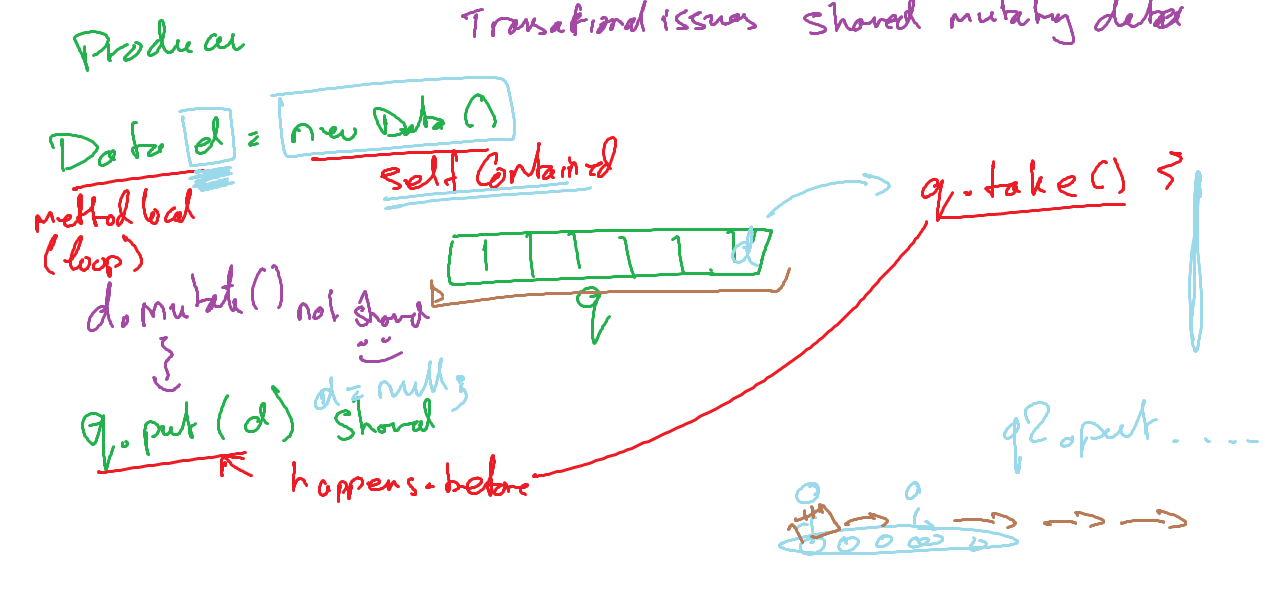 Transational issues shared mutating data
Producer
Data d = new Data ()
self Contained
method local
(loop)
q.take() }
d
d.mutate() not shared
}
q
d = null;
q.put (d) shared
happens-before
q2.put.....